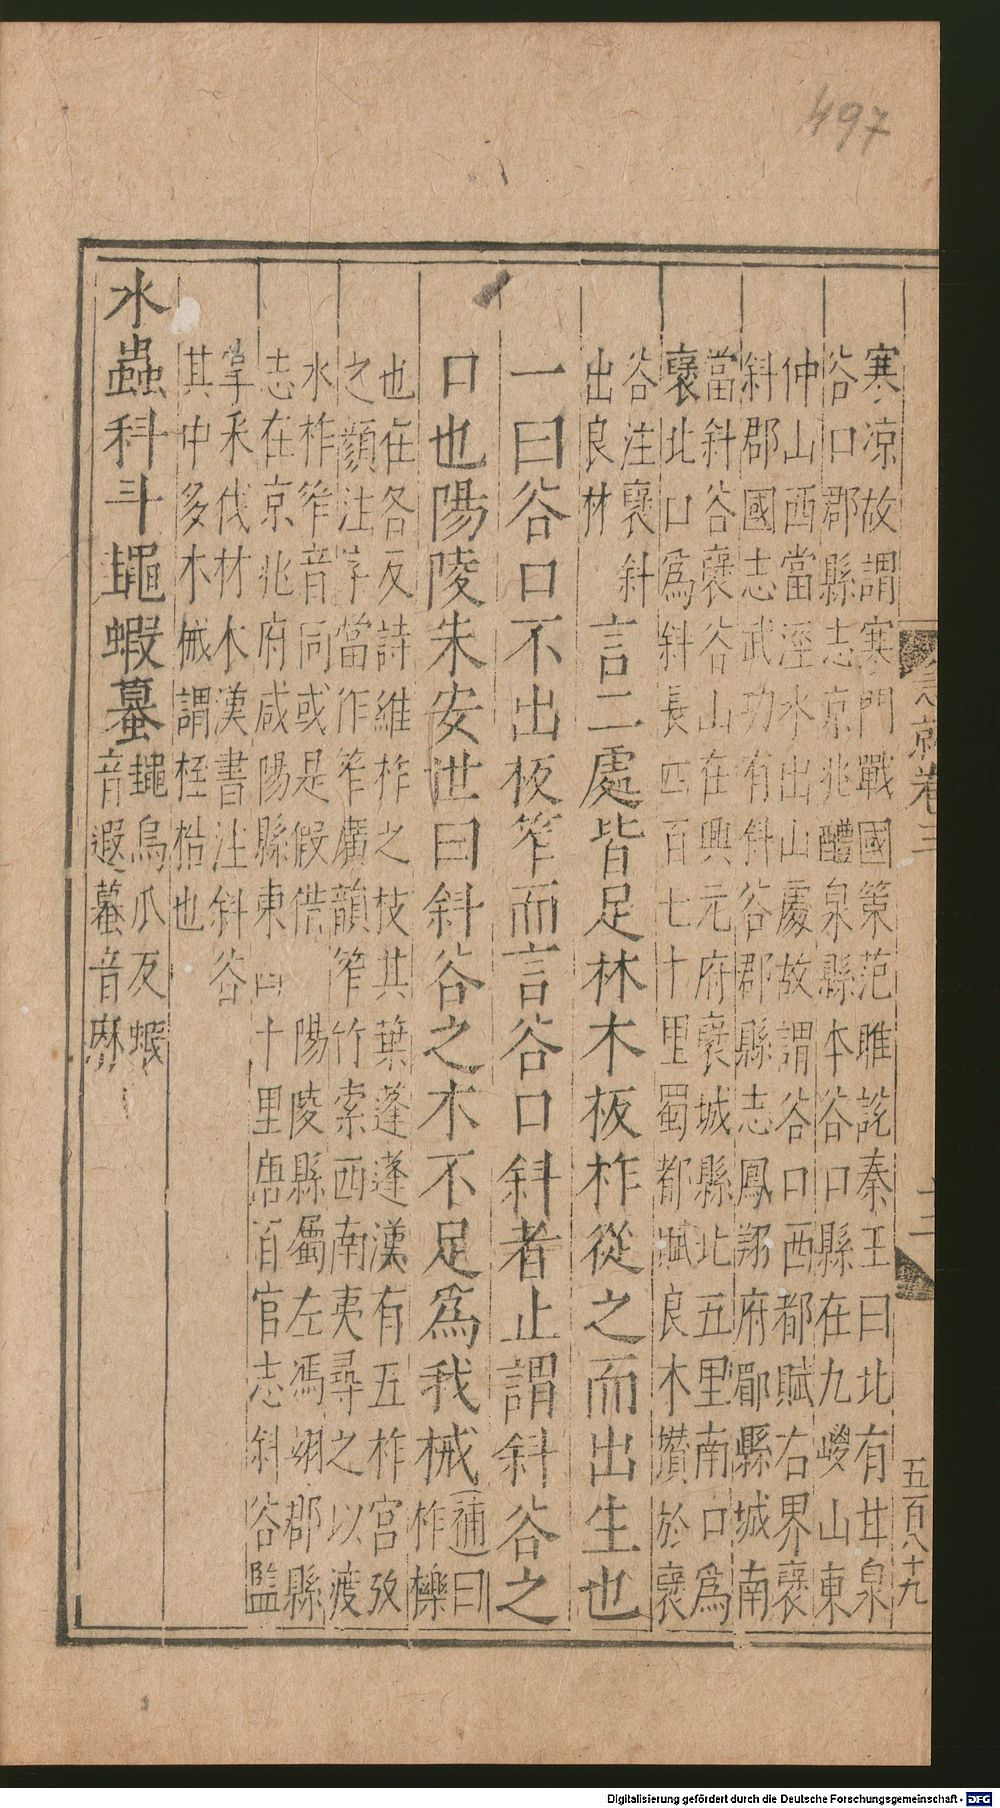 497
寒凉故謂寒門戰國策范雎說秦王曰北有甘泉
谷口郡縣志京兆醴泉縣本谷口縣在九嵕山東
仲山西當涇水出山處故謂谷口西都賦右界褒
斜郡國志武功有斜谷郡縣志鳳翔府郿縣城南
當斜谷褒谷山在興元府褒城縣北五里南口為
褒北口爲斜長四百七十里蜀都賦良木攢於褒
谷注褒斜
出良材
言二處皆足林木板柞從之而出生也
一曰谷口不出板笮而言谷口斜者止謂斜谷之
口也陽陵朱安世曰斜谷之木不足爲我械
補曰
柞櫟
也在各反詩維柞之枝其葉蓬蓬漢有五柞宮攷
之顔注字當作笮廣韻笮竹索西南夷尋之以渡
水柞笮音同或是假借 陽陵縣屬左馮翊郡縣
志在京兆府咸陽縣東 十里唐百官志斜谷監
掌采伐材木漢書注斜谷
其中多木械謂桎梏也
水蟲科斗䵷蝦蟇
䵷烏瓜反蝦
音遐蟇音麻
急就卷三
五百八十九
Digitalisierung gefördert durch die Deutsche Forschungsgemeinschaft - DFG